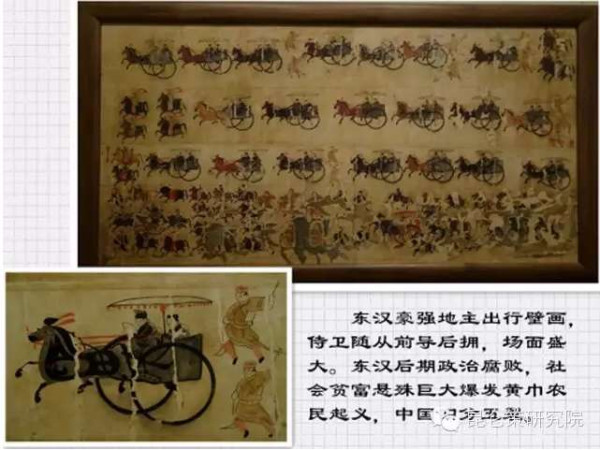 东汉豪强地主出行壁画，
侍卫随从前导后拥，场面盛
大。东汉后期政治腐败，社
会贫富悬殊巨大爆发黄巾农
民起义，中国
昆仑策研究院